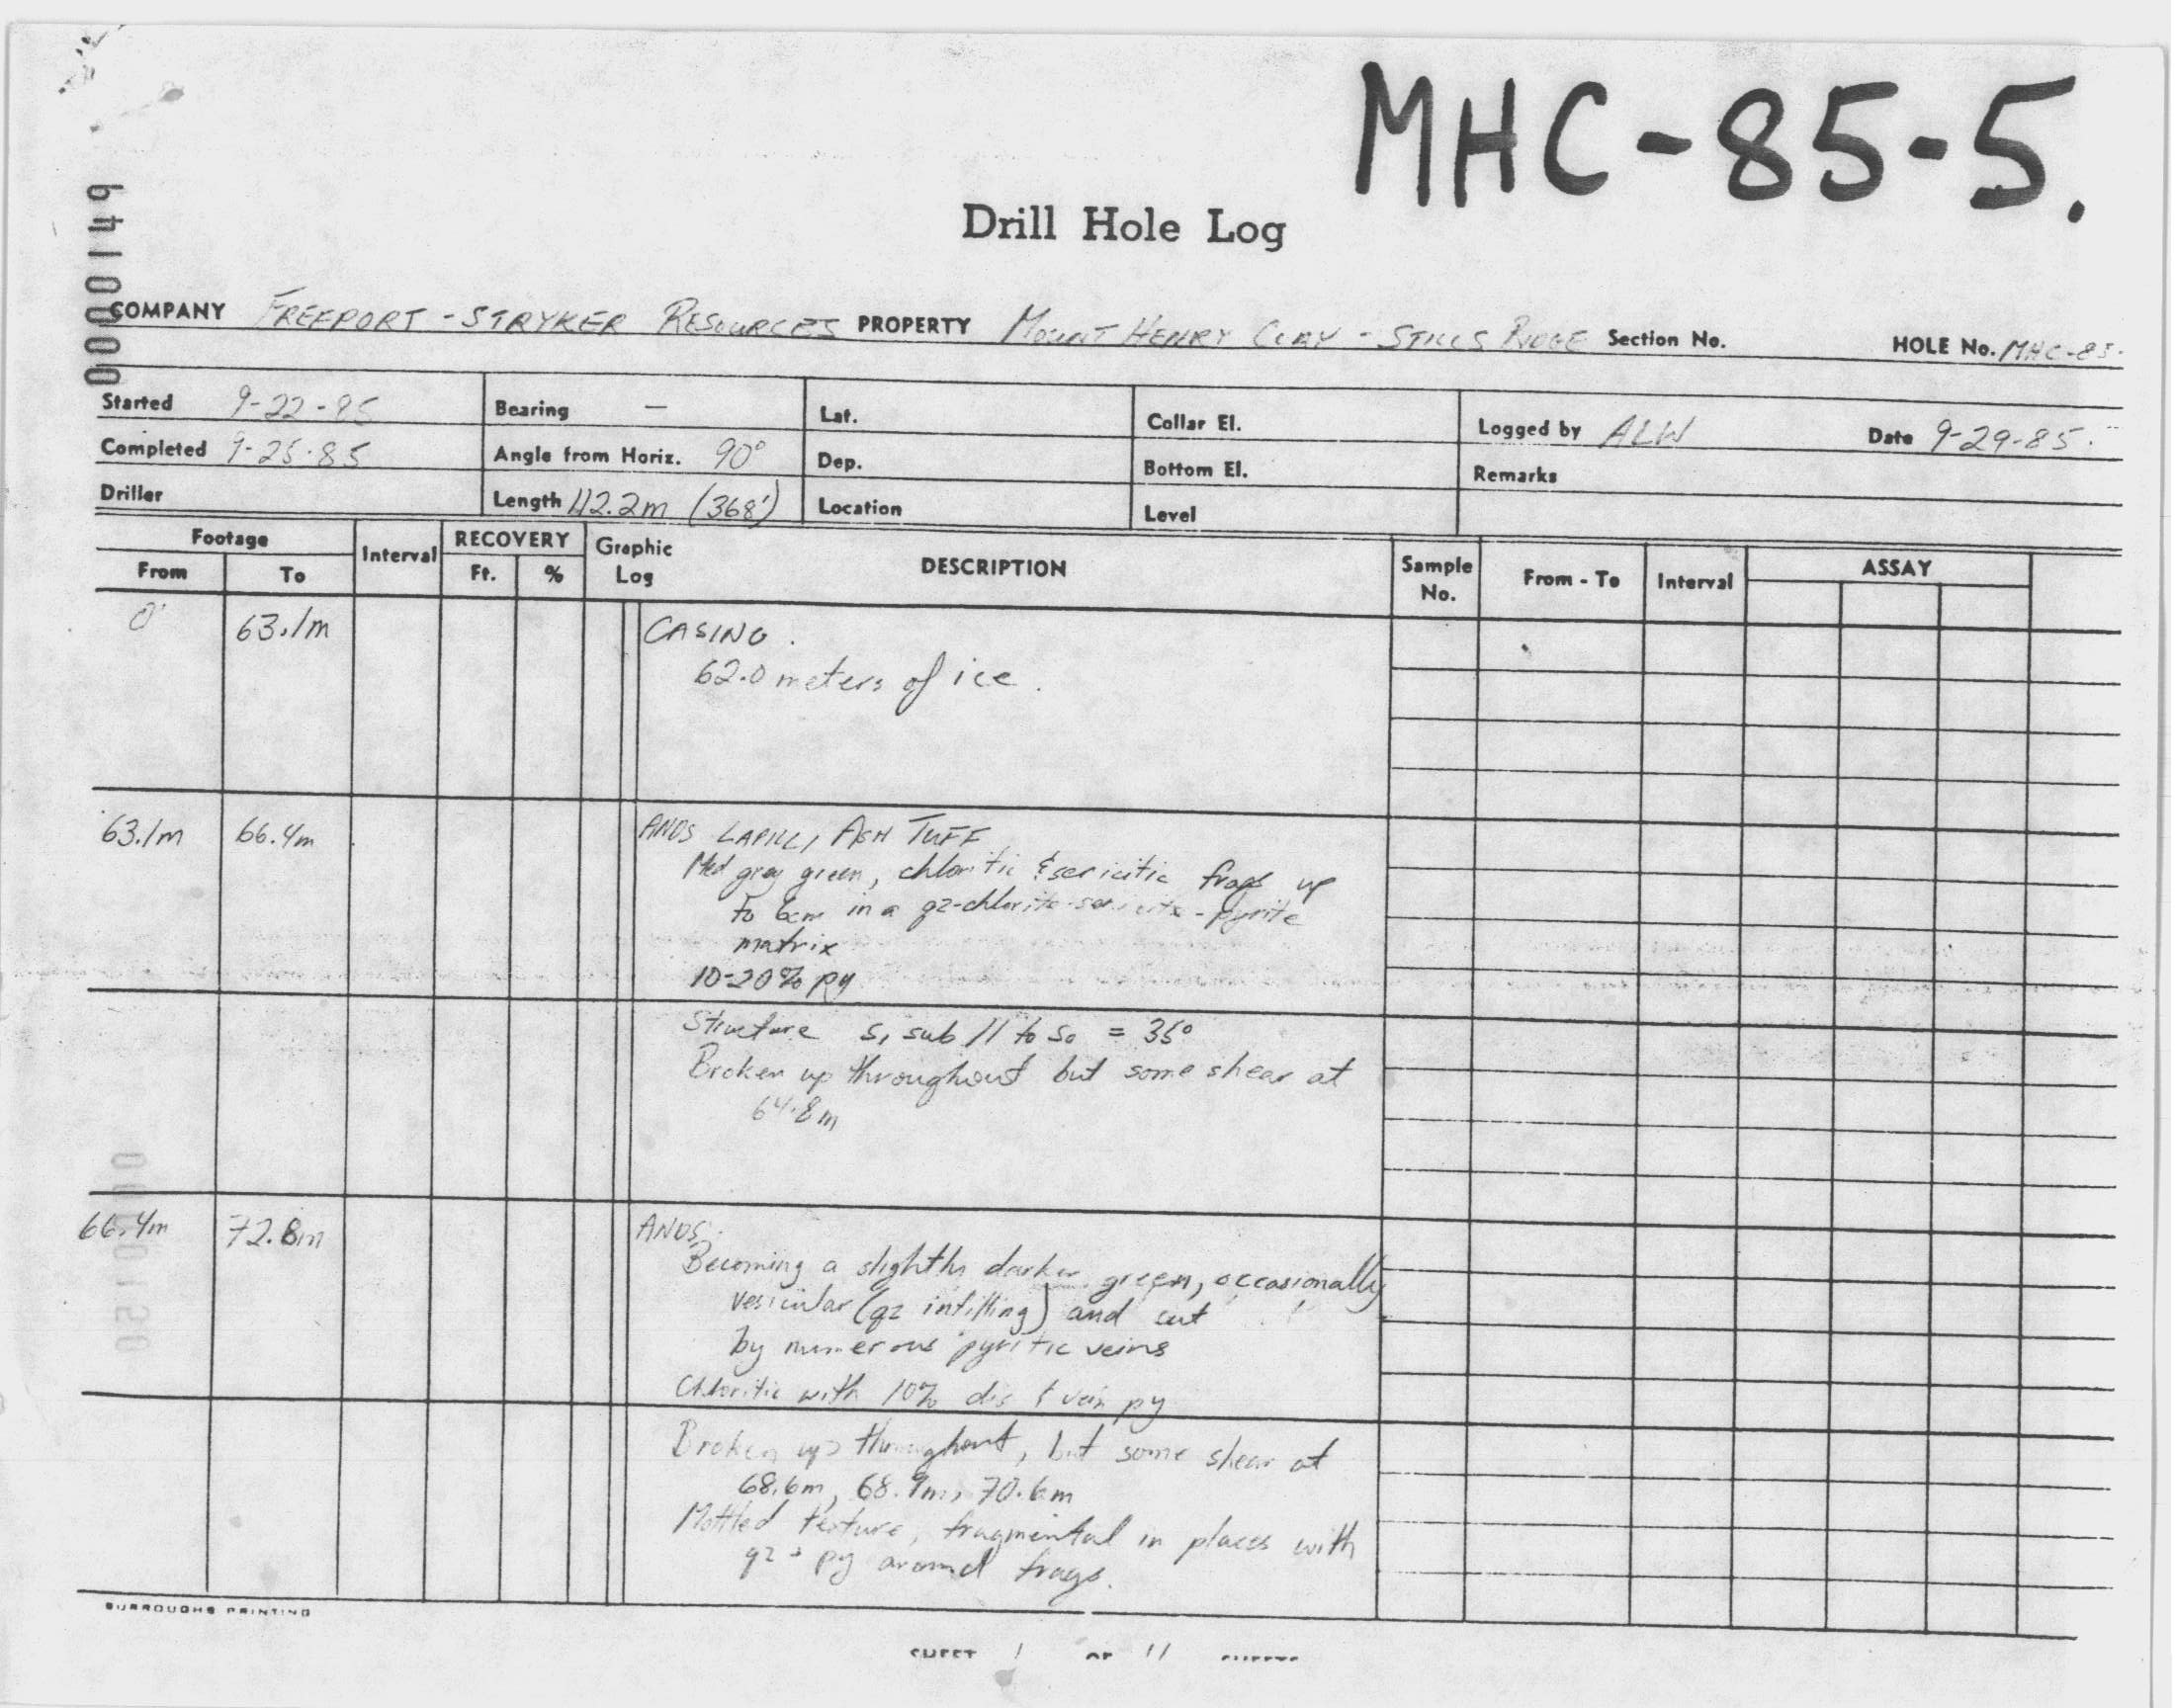 MHC-85-5.
Drill Hole Log
0000149
COMPANY FREEPORT - STRYKER RESOURCES PROPERTY MOUNT HENRY CLAY - STILLS RIDGE Section No. HOLE No. MHC-85-
Started 9-22-85 Bearing — Lat. Collar El. Logged by ALW Date 9-29-85
Completed 9-25-85 Angle from Horiz. 90° Dep. Bottom El. Remarks
Driller Length 112.2m (368') Location Level
Footage Interval RECOVERY Graphic Log DESCRIPTION Sample No. From - To Interval ASSAY
From To Ft. %
0' 63.1m CASING.
62.0 meters of ice.
63.1m 66.4m ANDS LAPILLI, ASH TUFF
Med grey green, chloritic & sericitic frags up
to 6cm in a qz-chlorite-sericite-pyrite
matrix
10-20% py
Structure S₁ sub // to S₀ = 35°
Broken up throughout but some shear at
64.8m
0000150
66.4m 72.8m ANDS.
Becoming a slightly darker green, occasionally
vesicular (qz infilling) and cut
by numerous pyritic veins
Chloritic with 10% dis & vein py
Broken up throughout, but some shear at
68.6m, 68.9m, 70.6m
Mottled texture, fragmental in places with
qz + py around frags.
BURROUGHS PRINTING
SHEET 1 OF 11 SHEETS